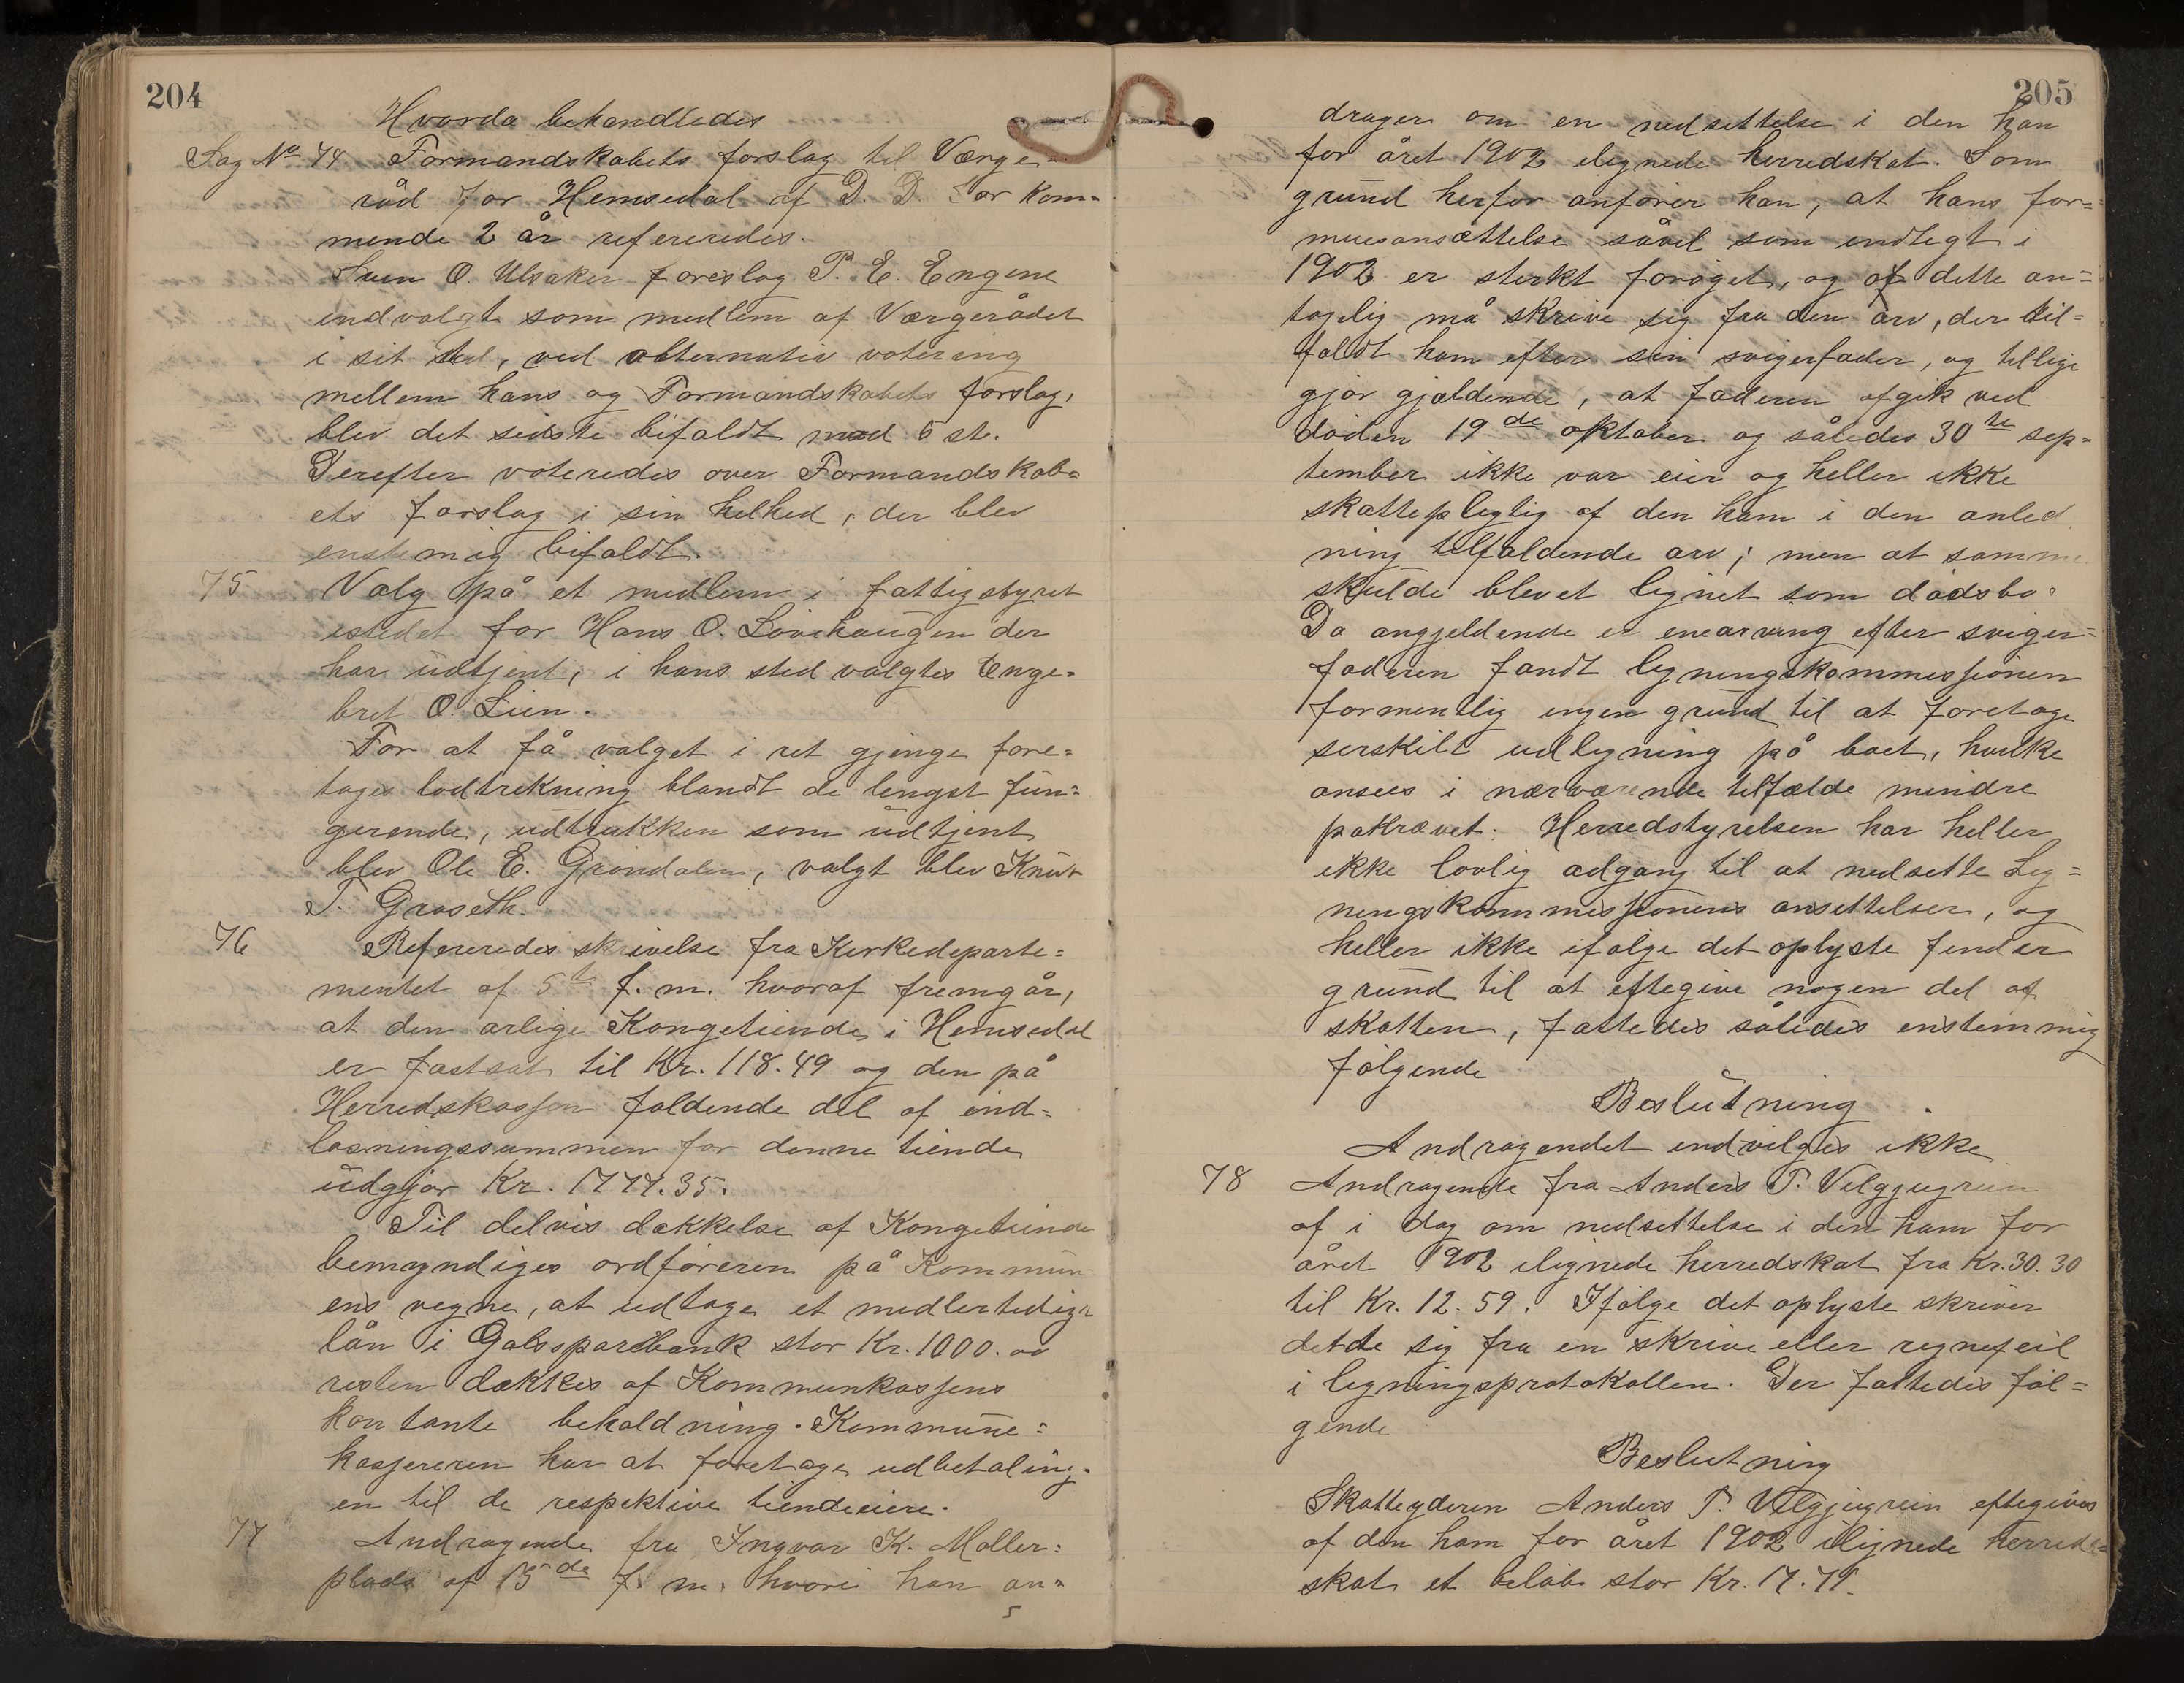 204
Hvorda behandledes
Sag No 74 Formandskabets forslag til Værge=
råd for Hemsedal af D. D. for kom=
mende 2 år refereredes.
Sven O. Ulsaker foreslog P. E. Engene
indvalgt som medlem af Værgerådet
i sit sted, ved alternativ votering
mellem hans og Formandskabets forslag,
blev det sidste bifaldt med 6 st.
Derefter voteredes over Formandskab=
ets forslag i sin helhed, der blev
enstemig bifaldt.
75 Valg på et medlem i fattigstyret
istedet for Hans O. Lövehaugen der
har udtjent, i hans sted valgtes Enge=
bret O. Lien.
For at få valget i ret gjenge fore=
toges lodtrekning blandt de lengst fun=
gerende, udtrukken som udtjent
blev Ole E. Gröndalen, valgt blev Knut
T. Graseth.
76 Refereredes skrivelse fra Kirkedeparte=
mentet af 5te f. m. hvoraf fremgår,
at den arlige Kongetiende i Hemsedal
er fastsat til Kr. 118.49 og den på
Herredskassen faldende del af ind=
løsningssummen for denne tiende
udgjør Kr. 1777.35.
Til delvis dækkelse af Kongetiende
bemyndiges ordføreren på Kommun
ens vegne, at udtage et midlertidigt
lån i Golssparebank stor Kr. 1000. og
resten dækkes af Kommunkassens
kontante beholdning. Kommune=
kassereren har at foretage udbetaling=
en til de respektive tiendeeiere.
77 Andragende fra Ingvar K. Møller=
plads af 15de f. m. hvori han an=
5
205
drager om en nedsettelse i den han
for året 1902 ilignede herredskat. Som
grund herfor anfører han, at hans for=
muesansættelse såvel som indtegt i
1902 er sterkt forøget, og af dette an=
tagelig må skrive sig fra den arv, der til=
faldt ham efter sin svigerfader, og tillige
gjør gjældende, at faderen afgik ved
døden 19de oktober og således 30te sep=
tember ikke var eier og heller ikke
skattepligtig af den ham i den anled
ning tilfaldende arv; men at samme
skulde blevet lignet som dødsbo.
Da angjeldende er enearving efter sviger=
faderen fandt ligningskommissionen
formentlig ingen grund til at foretage
serskilt udligning på boet, hvilke
ansees i nærværende tilfælde mindre
påkrævet. Herredstyrelsen har heller
ikke lovlig adgang til at nedsette Lig=
ningskommissionens ansettelser, og
heller ikke ifølge det oplyste finder
grund til at eftegive nogen del af
skatten, fattedes således enstemmig
følgende
Beslutning
Andragendet indvilges ikke
78 Andragende fra Anders P. Velgjugrein
af i dag om nedsettelse i den ham for
året 1902 ilignede herredskat fra Kr. 30.30
til Kr. 12.59. Ifølge det oplyste skriver
dette sig fra en skrive eller regnefeil
i ligningsprotokollen. Der fattedes føl=
gende
Beslutning
Skatteyderen Anders P. Velgjugrein eftegives
af den ham for året 1902 ilignede herreds=
skat et beløb stor Kr. 17.71.